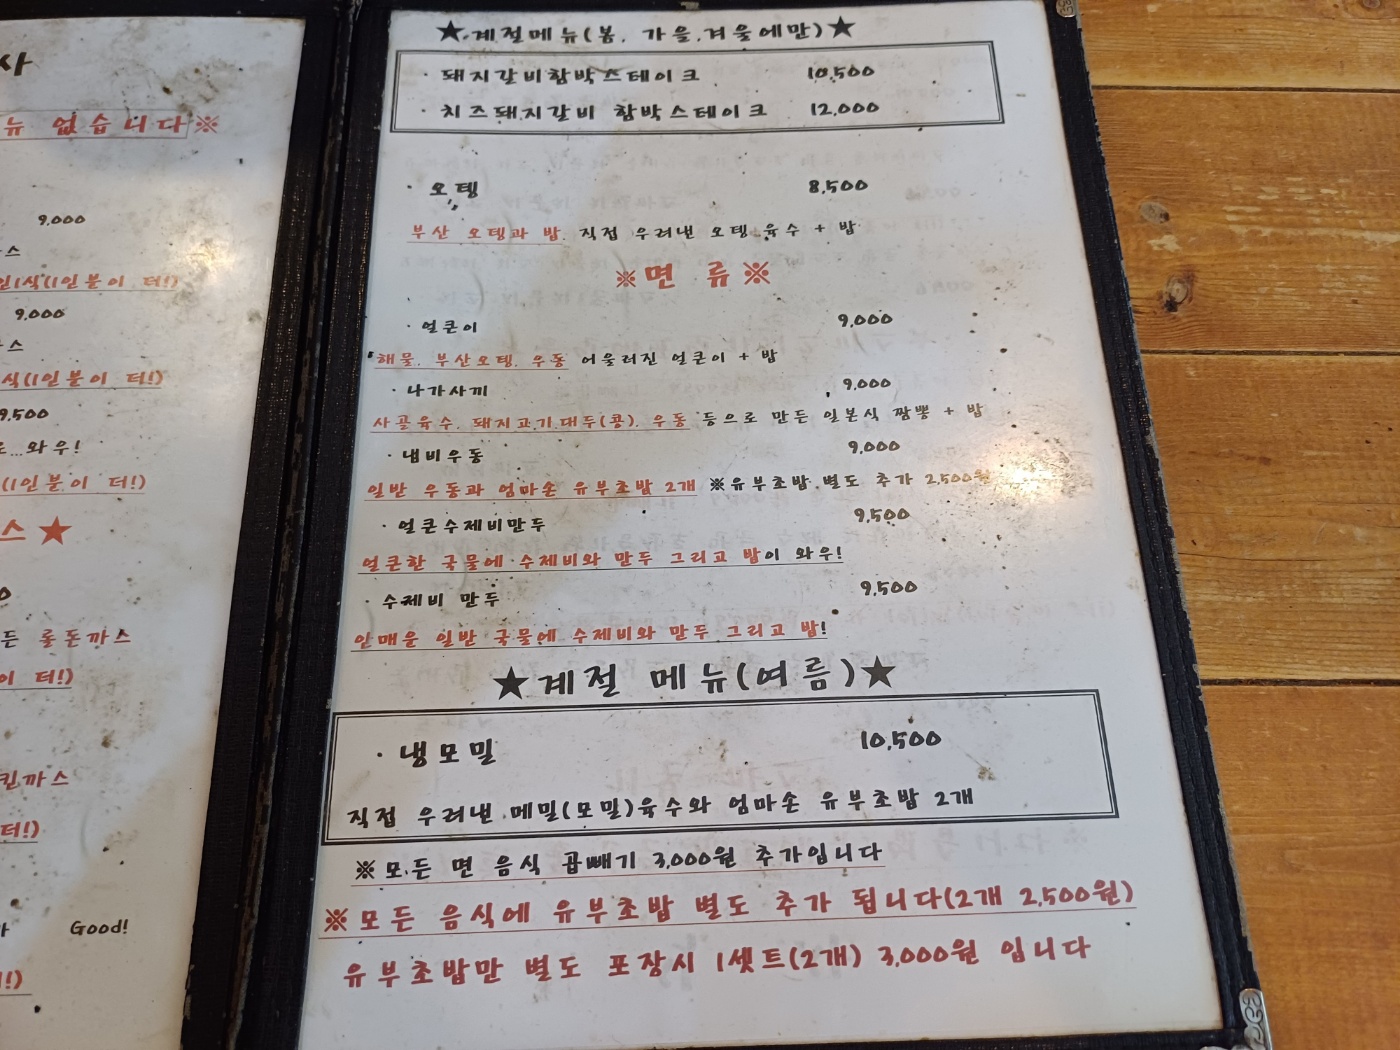 사
뉴 없습니다※
9,000
스
인1식(1인분이 더!)
9,000
스
식(1인분이 더!)
9,500
...와우!
(1인분이 더!)
스★
든 롤돈까스
이 더!)
킨까스
더!)
Good!
★계절메뉴(봄, 가을,겨울에만)★
· 돼지갈비함박스테이크 10,500
· 치즈돼지갈비 함박스테이크 12,000
· 오뎅 8,500
부산 오뎅과 밥, 직접 우려낸 오뎅 육수 + 밥
※면 류※
· 얼큰이 9,000
해물, 부산오뎅, 우동 어울러진 얼큰이 + 밥
· 나가사끼 9,000
사골육수, 돼지고기,대두(콩), 우동 등으로 만든 일본식 짬뽕 + 밥
· 냄비우동 9,000
일반 우동과 엄마손 유부초밥 2개 ※유부초밥 별도 추가 2,500원
· 얼큰수제비만두 9,500
얼큰한 국물에 수제비와 만두 그리고 밥이 와우!
· 수제비 만두 9,500
안매운 일반 국물에 수제비와 만두 그리고 밥!
★계절 메뉴(여름)★
· 냉모밀 10,500
직접 우려낸 메밀(모밀)육수와 엄마손 유부초밥 2개
※모든 면 음식 곱빼기 3,000원 추가입니다
※모든 음식에 유부초밥 별도 추가 됩니다(2개 2,500원)
유부초밥만 별도 포장시 1셋트(2개) 3,000원 입니다